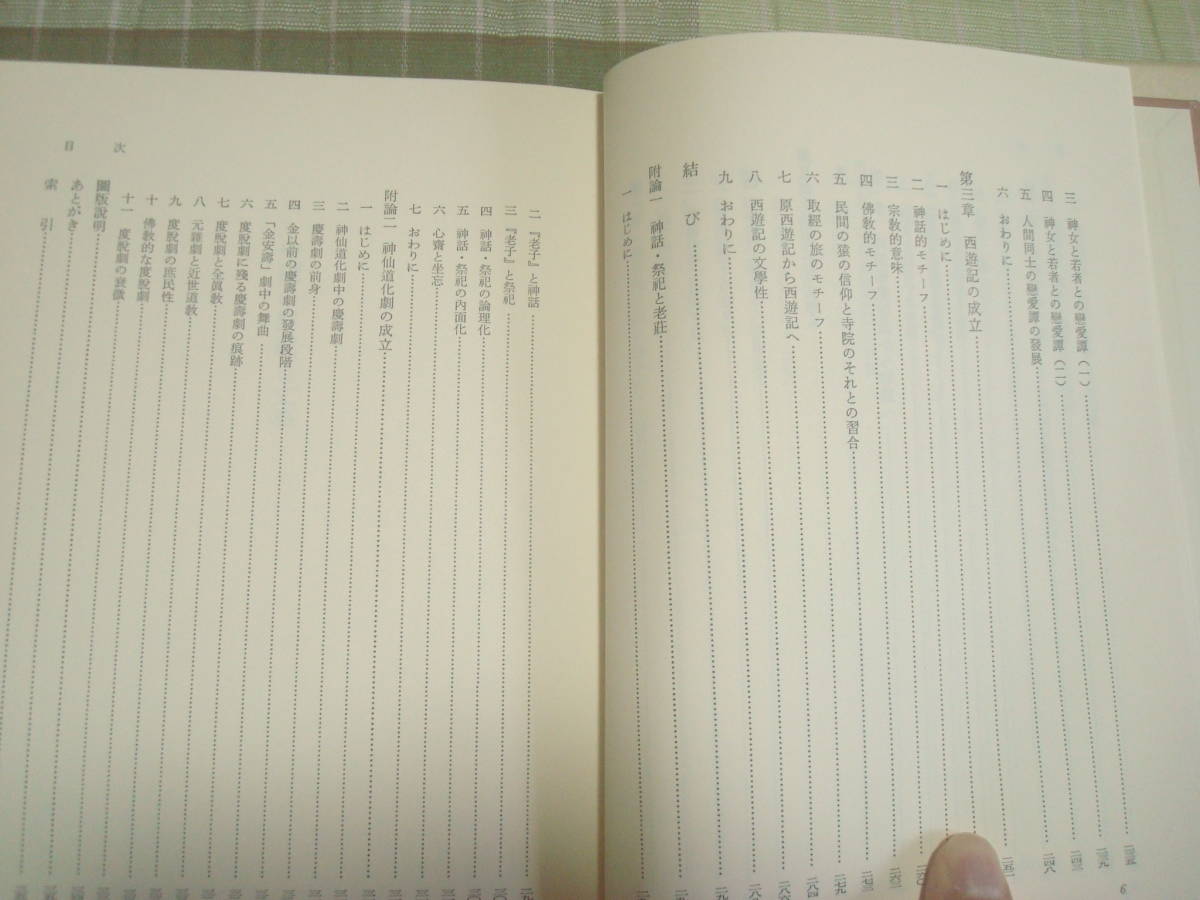 三 神女と若者との戀愛譚（一）……二三五
四 神女と若者との戀愛譚（二）……二三九
五 人間同士の戀愛譚の發展……二四三
六 おわりに……二四八
第三章 西遊記の成立……二五一
一 はじめに
二 神話的モチーフ
三 宗敎的意味……二六二
四 佛敎的モチーフ……二七三
五 民間の猿の信仰と寺院のそれとの習合……二七九
六 取經の旅のモチーフ……二八四
七 原西遊記から西遊記へ
八 西遊記の文學性
九 おわりに
結び
附論一 神話・祭祀と老莊
一 はじめに
6
二 『老子』と神話
三 『老子』と祭祀
四 神話・祭祀の論理化
五 神話・祭祀の内面化
六 心齋と坐忘
七 おわりに
附論二 神仙道化劇の成立
一 はじめに
二 神仙道化劇中の慶壽劇
三 慶壽劇の前身
四 金以前の慶壽劇の發展段階
五 「金安壽」劇中の舞曲
六 度脫劇に殘る慶壽劇の痕跡
七 度脫劇と全眞敎
八 元雜劇と近世道敎
九 度脫劇の庶民性
十 佛敎的な度脫劇
十一 度脫劇の衰微
圖版說明
あとがき
索引
目次